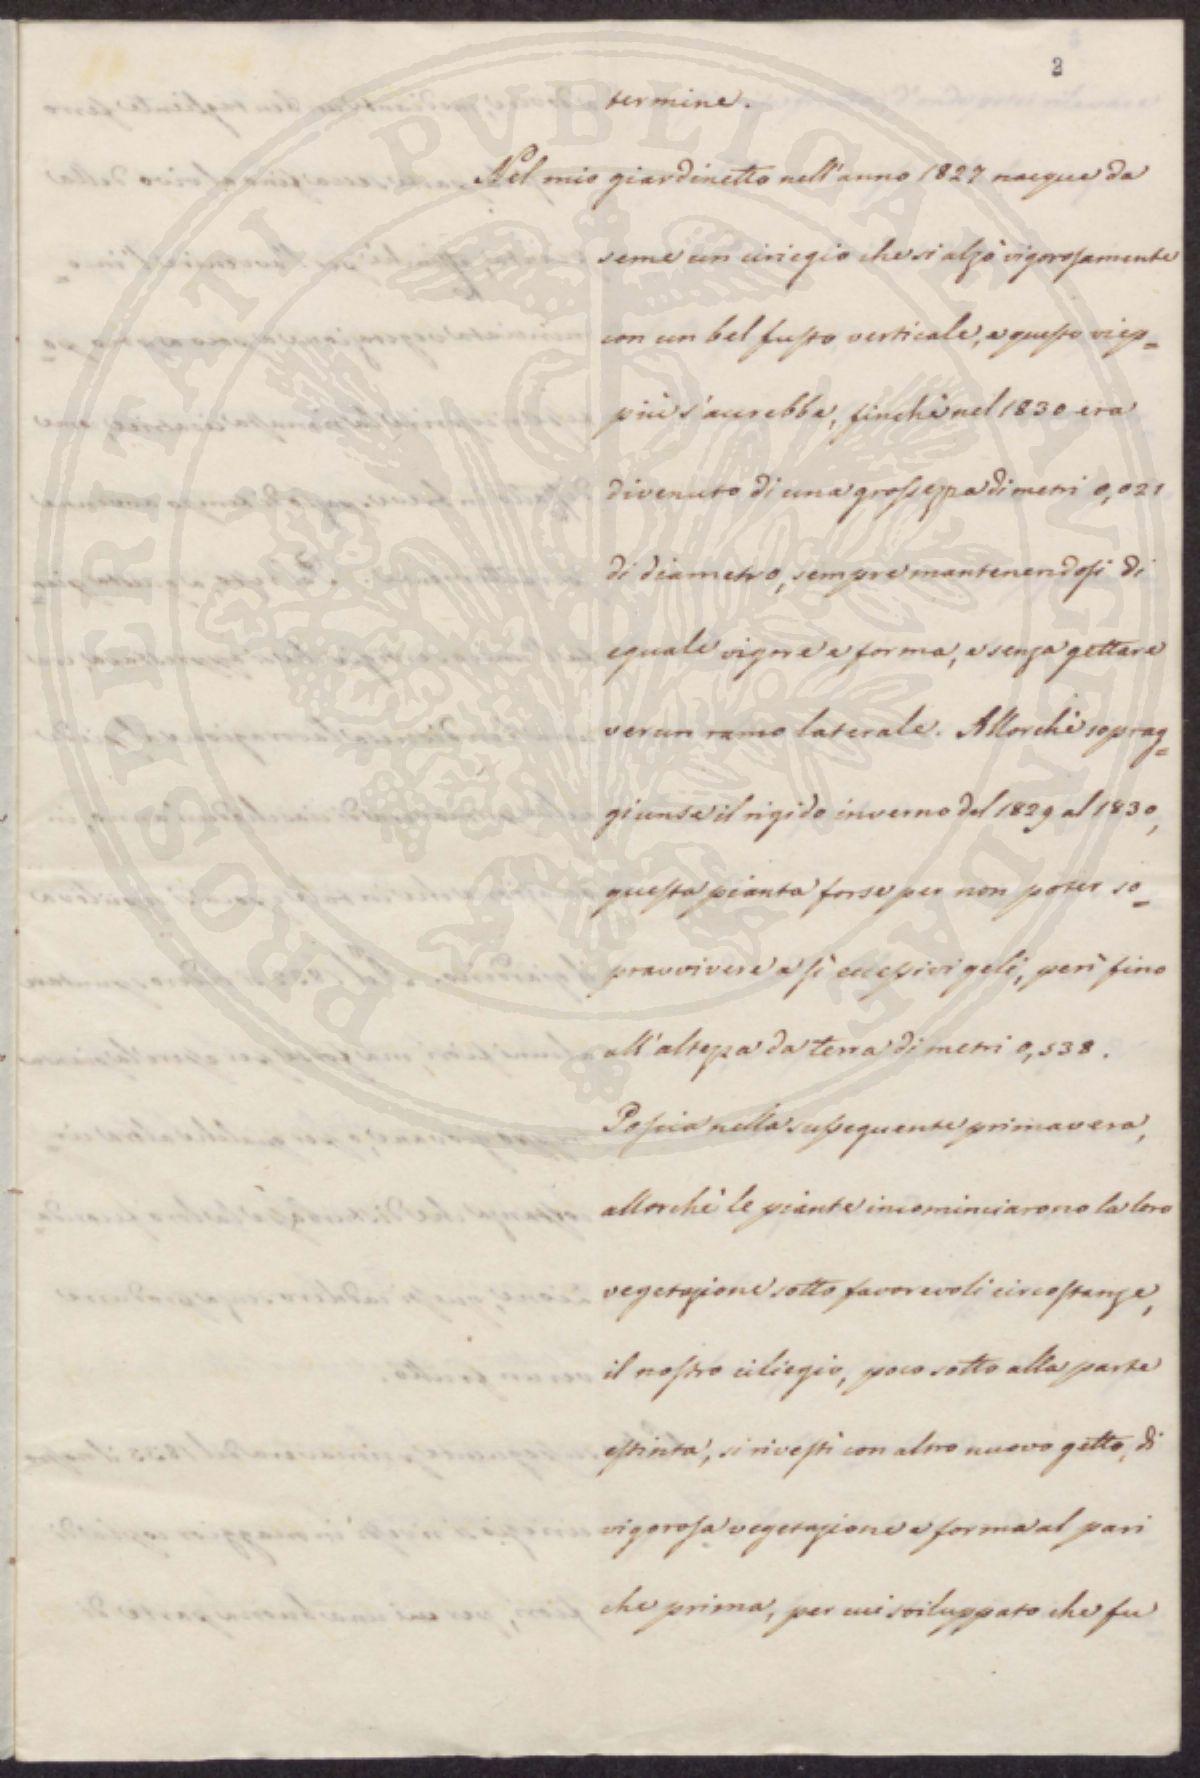 2
termine.
Nel mio giardinetto nell'anno 1827 nacque da
seme un ciriegio che si alzò vigorosamente
con un bel fusto verticale, e questo viep=
più s'accrebbe, finchè nel 1830 era
divenuto di una grossezza di metri 0,021
di diametro, sempre mantenendosi di
eguale vigore e forma, e senza gettare
verun ramo laterale. Allorchè soprag=
giunse il rigido inverno del 1829 al 1830,
questa pianta forse per non poter so=
pravvivere a sì eccessivi geli, perì fino
all'altezza da terra di metri 0,538.
Poscia nella susseguente primavera,
allorchè le piante incominciarono la loro
vegetazione sotto favorevoli circostanze,
il nostro ciliegio, poco sotto alla parte
estinta, si rivestì con altro nuovo getto, di
vigorosa vegetazione e forma al pari
che prima, per cui sviluppato che fu
PROSPERITATI PUBLICAE AUGENDAE